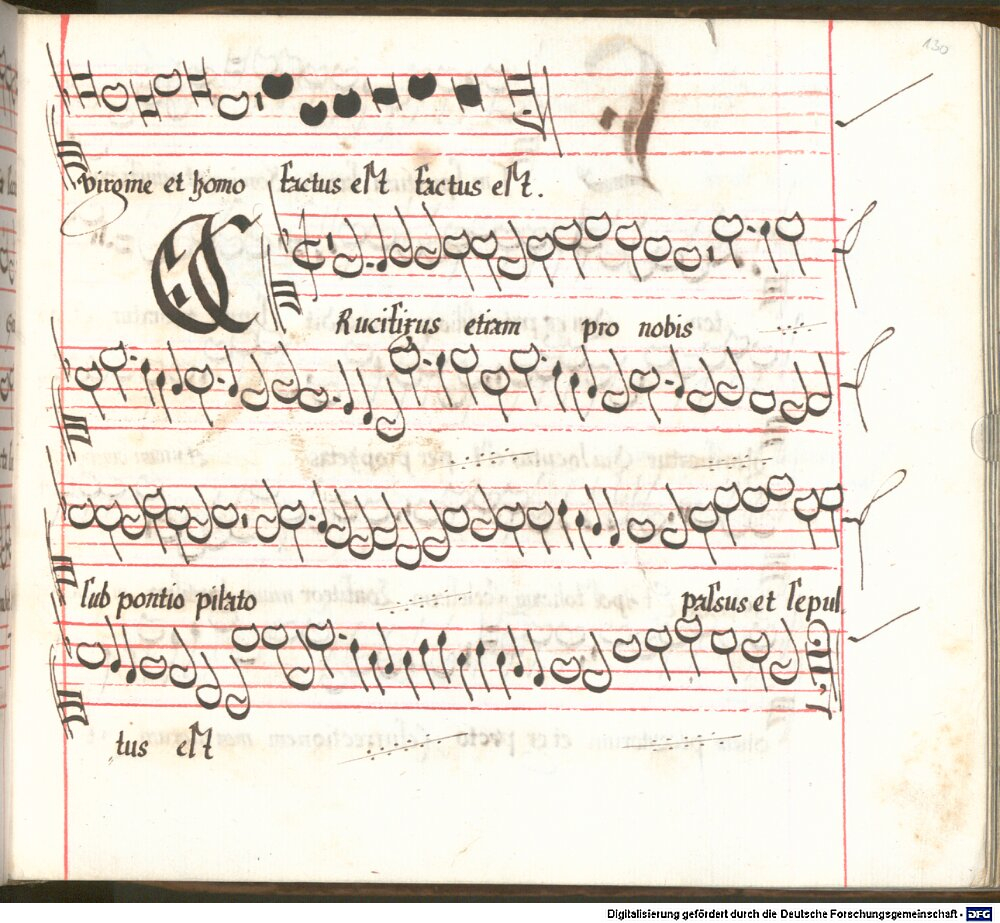 130
virgine et homo factus est factus est.
CRucifixus etiam pro nobis
sub pontio pilato passus et sepul
tus est
Digitalisierung gefördert durch die Deutsche Forschungsgemeinschaft - DFG